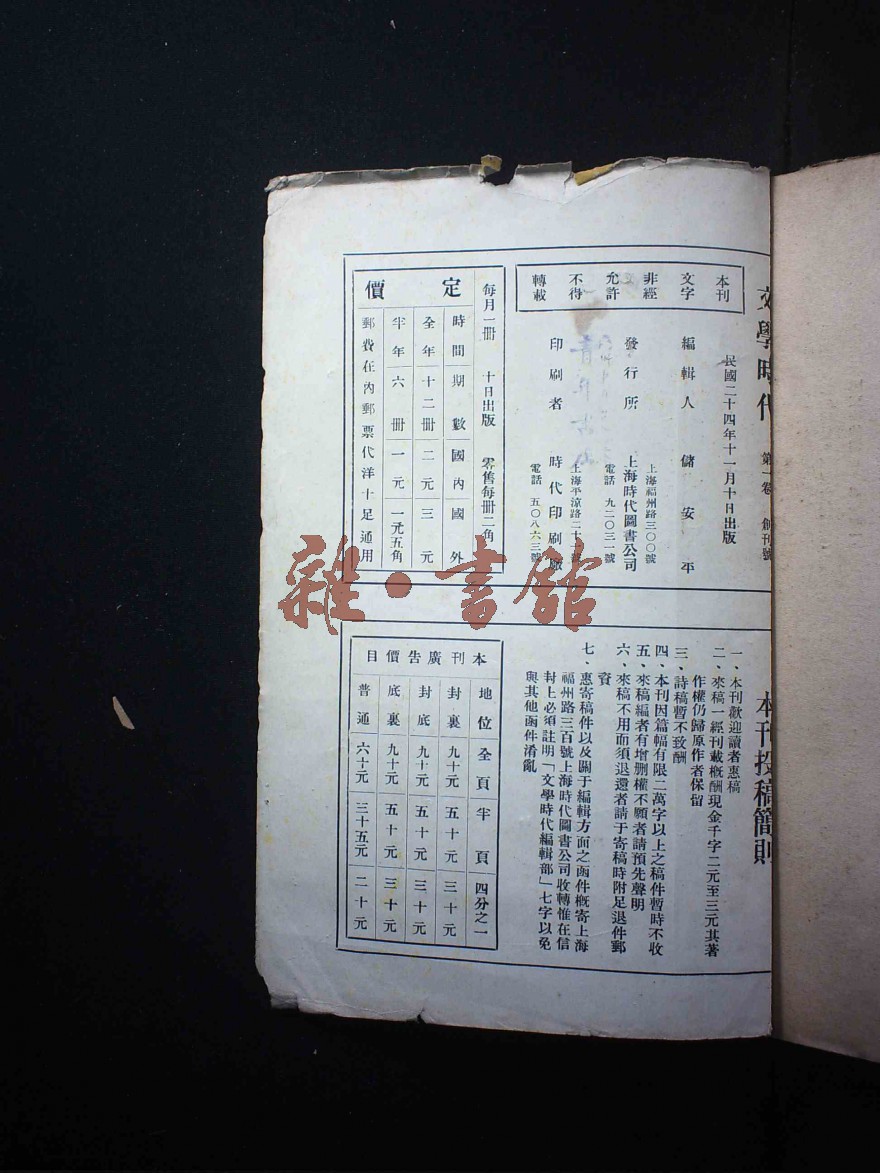 文學時代 第一卷 創刊號
民國二十四年十一月十日出版
本刊文字非經允許不得轉載
編輯人 儲安平
上海福州路三〇〇號
發行所 上海時代圖書公司
電話 九二〇三一號
上海平涼路二十一號
印刷者 時代印刷廠
電話 五〇八六三號
每月一冊 十日出版 零售每冊二角
定價
時間 期數 國內 國外
全年 十二冊 二元 三元
半年 六冊 一元 一元五角
郵費在內郵票代洋十足通用
本刊投稿簡則
一、本刊歡迎讀者惠稿
二、來稿一經刊載概酬現金千字二元至三元其著
作權仍歸原作者保留
三、詩稿暫不致酬
四、本刊因篇幅有限二萬字以上之稿件暫時不收
五、來稿編者有增刪權不願者請預先聲明
六、來稿不用而須退還者請于寄稿時附足退件郵
資
七、惠寄稿件以及關于編輯方面之函件概寄上海
福州路三百號上海時代圖書公司收轉惟在信
封上必須註明「文學時代編輯部」七字以免
與其他函件淆亂
本刊廣告價目
地位 全頁 半頁 四分之一
封裏 九十元 五十元 三十元
封底 九十元 五十元 三十元
底裏 九十元 五十元 三十元
普通 六十元 三十五元 二十元
雜·書館